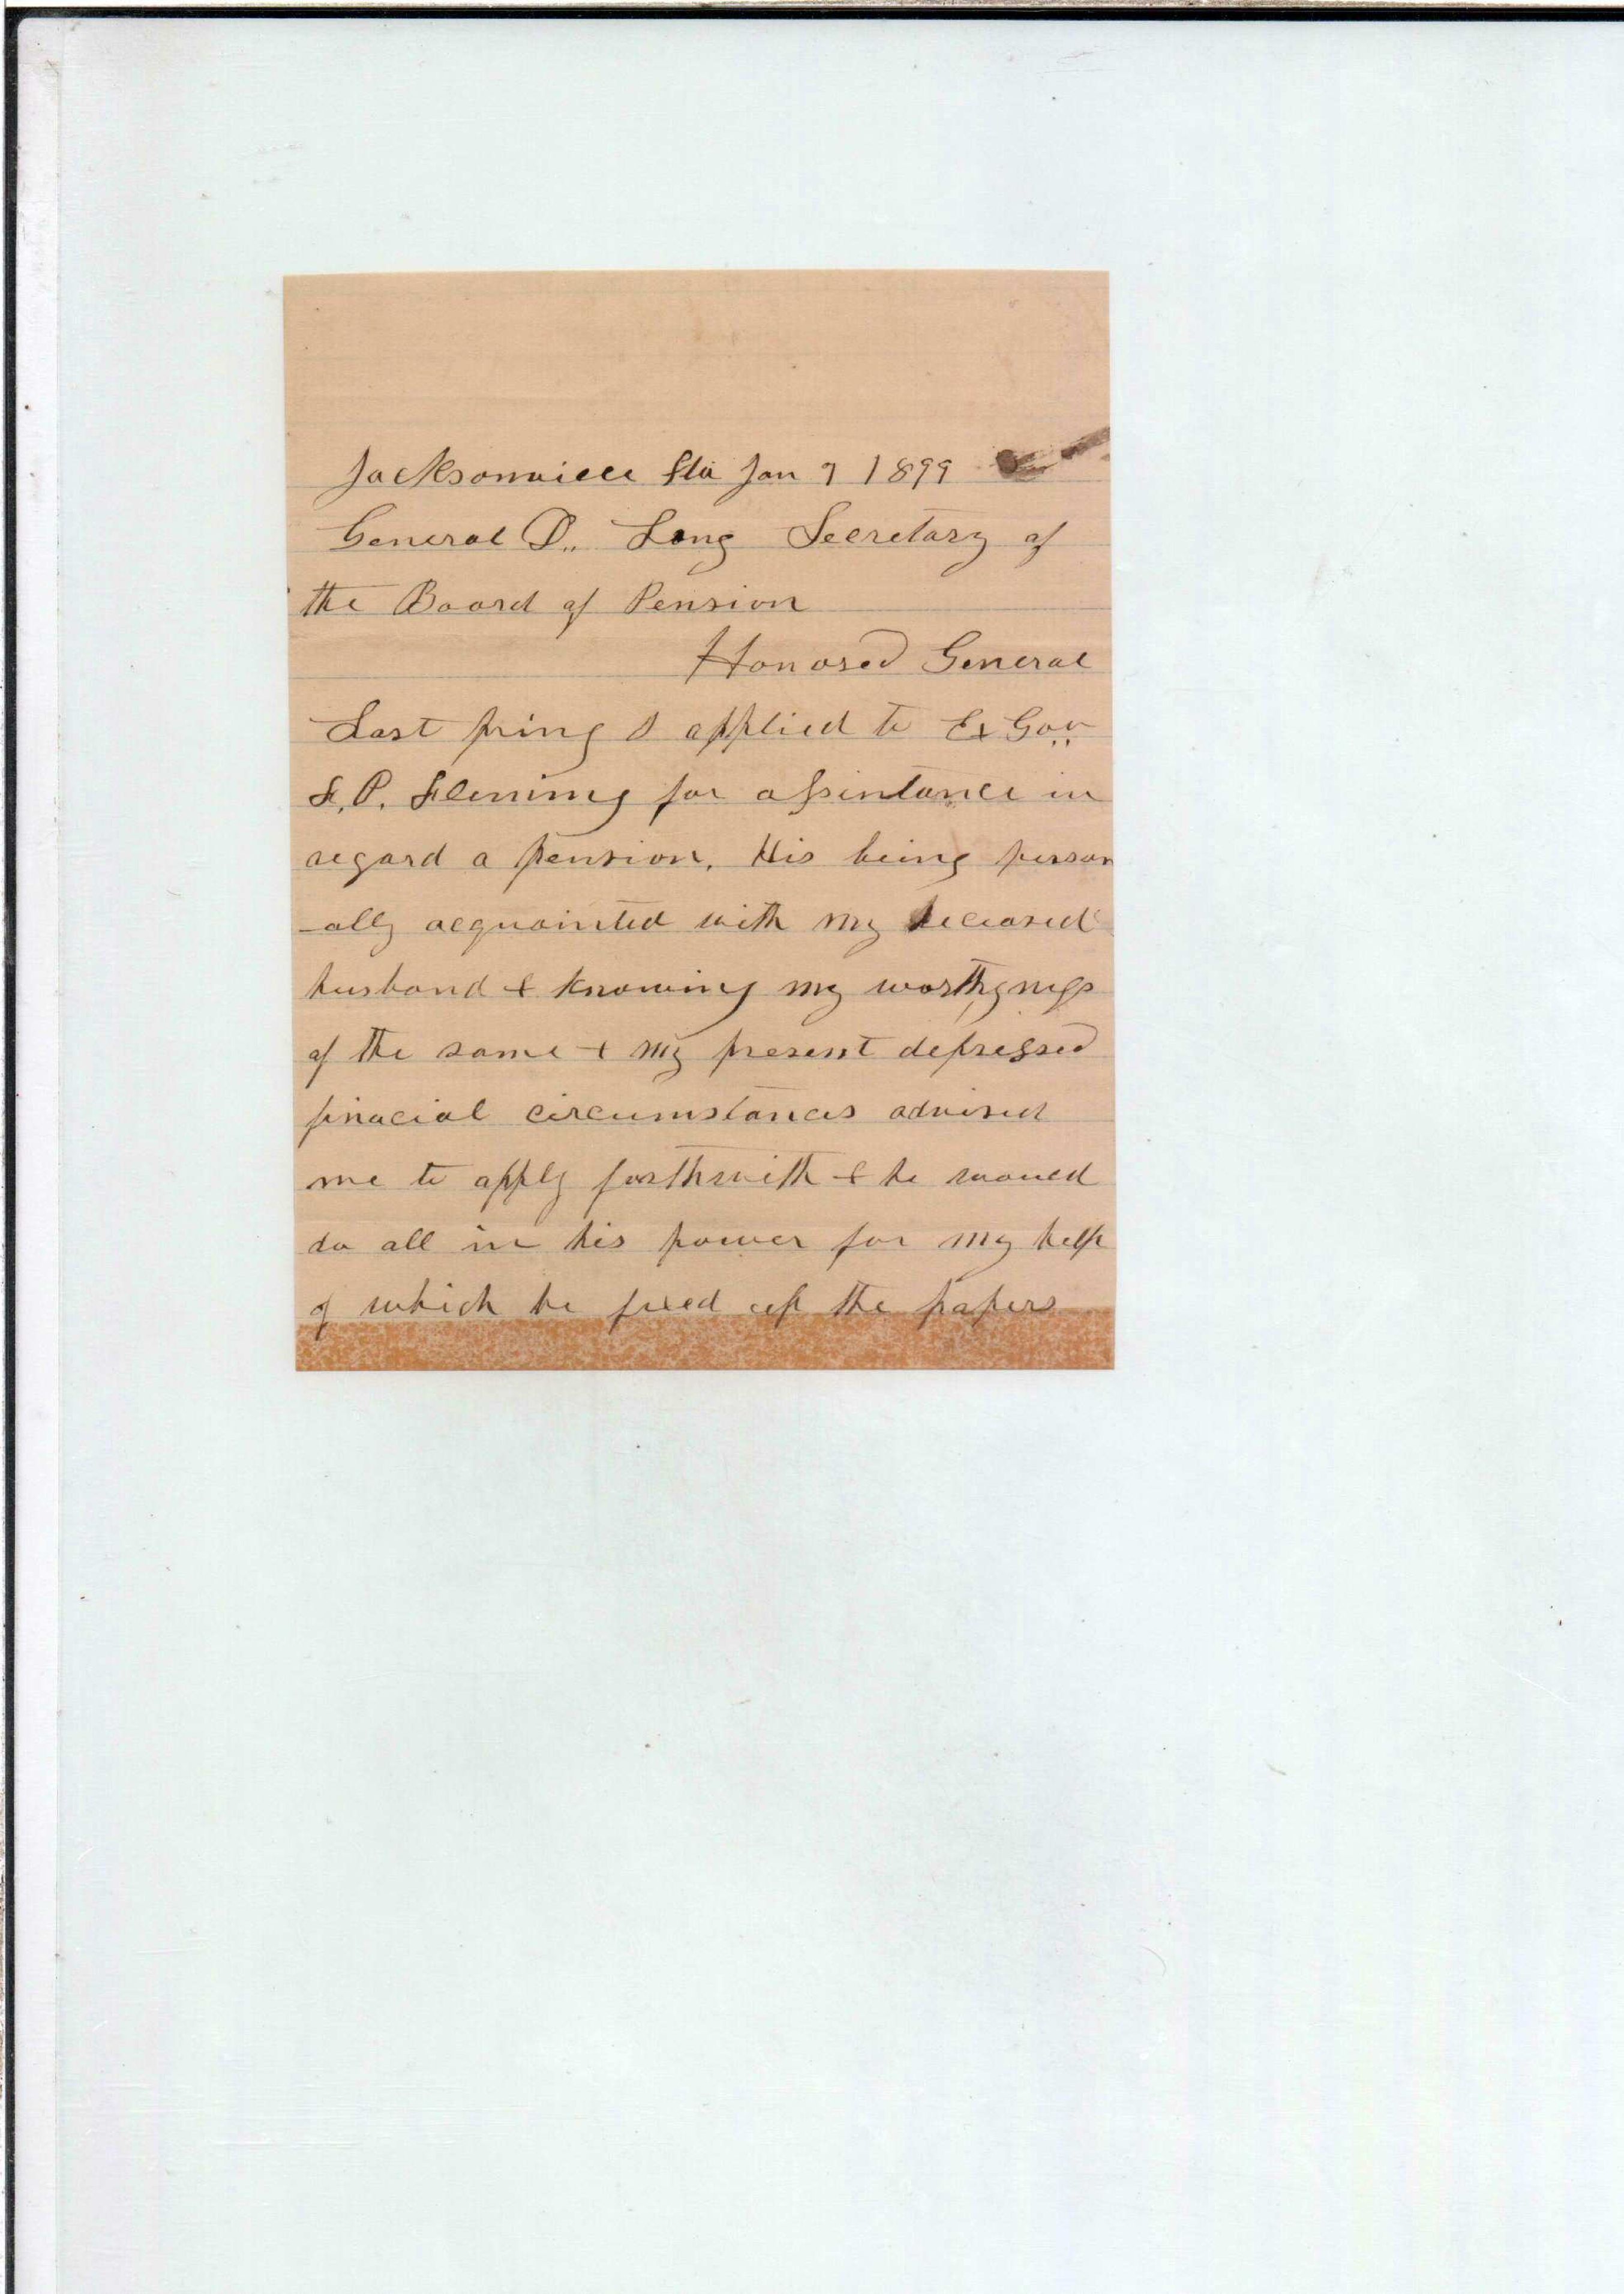 Jacksonville Fla Jan 7 1899
General D.. Lang Secretary of
the Board of Pension
Honored General
Last pring I applied to Ex Gov
F. P. Fleming for assistance in
regard a pension. His being person
-ally acquainted with my deceased
husband & knowing my worthyness
of the same & my present depressed
finacial circumstances advised
me to apply forthwith & he would
do all in his power for my help
of which he fixed up the papers